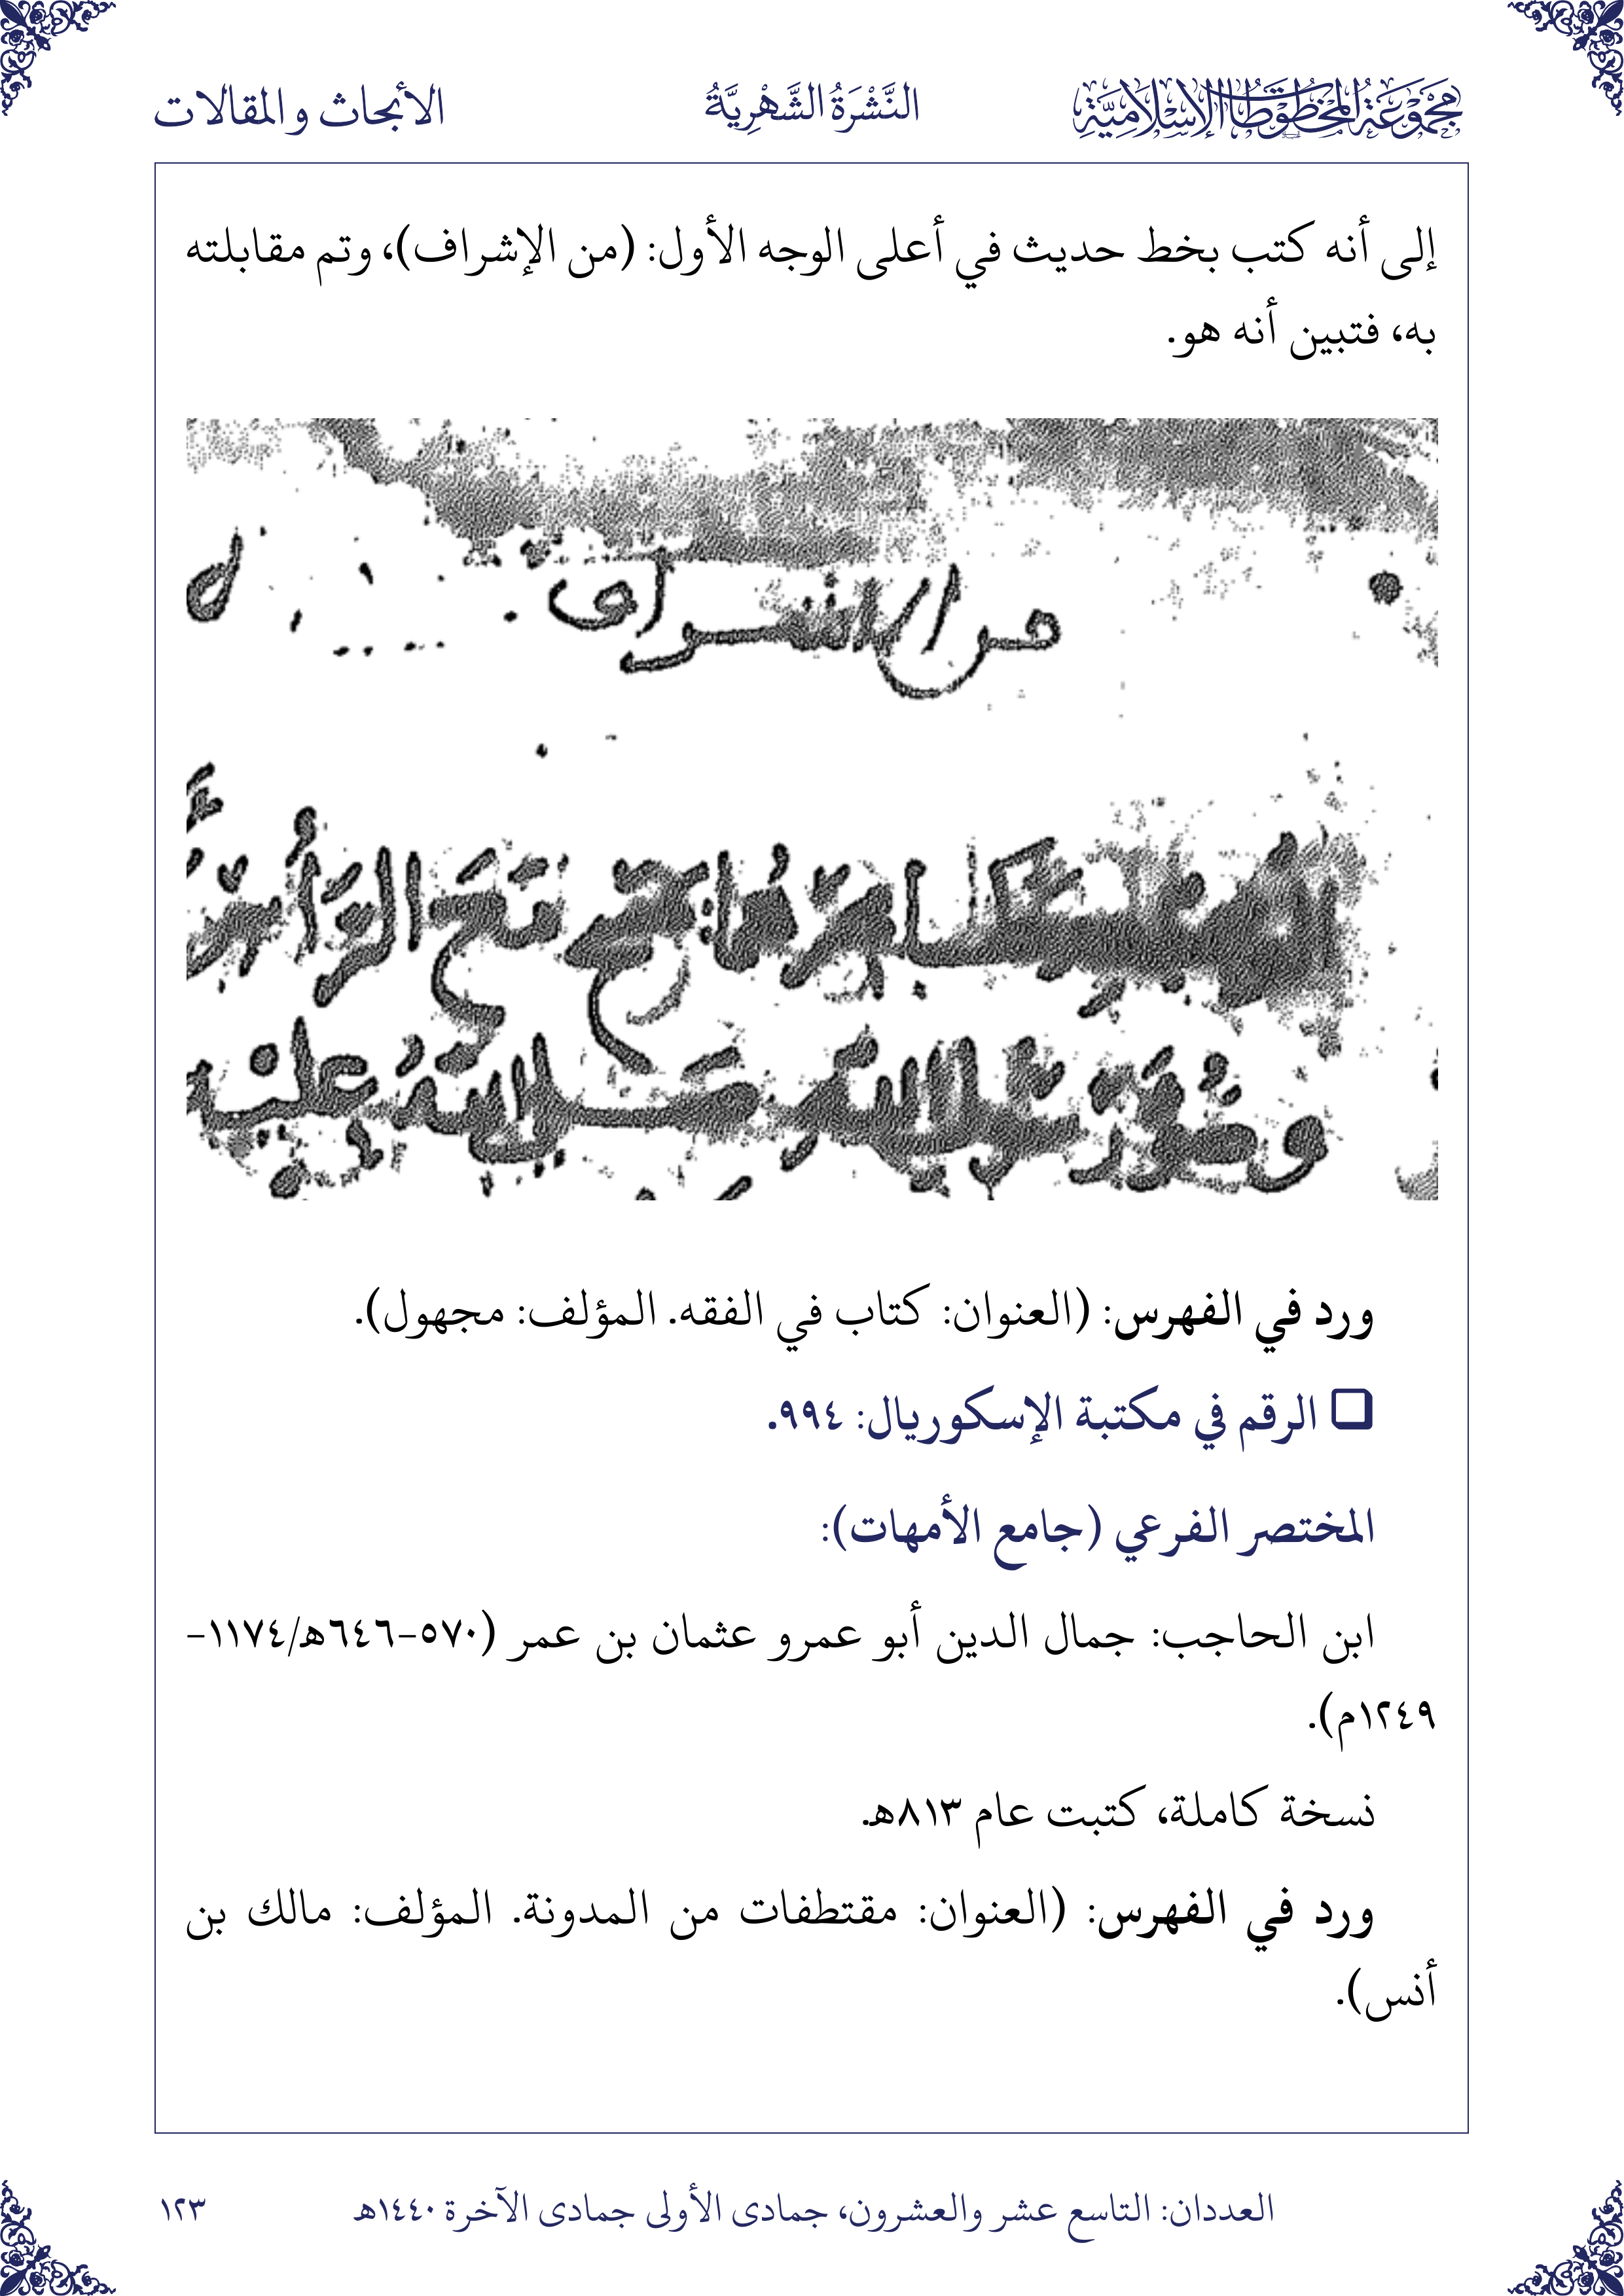 مجموعة المخطوطات الإسلامية
النَّشْرَةُ الشَّهْرِيَّةُ
الأبحاث والمقالات
إلى أنه كتب بخط حديث في أعلى الوجه الأول: (من الإشراف)، وتم مقابلته
به، فتبين أنه هو.
من الاشراف
ورد في الفهرس: (العنوان: كتاب في الفقه. المؤلف: مجهول).
❑ الرقم في مكتبة الإسكوريال: ٩٩٤.
المختصر الفرعي (جامع الأمهات):
ابن الحاجب: جمال الدين أبو عمرو عثمان بن عمر (٥٧٠-٦٤٦هـ/١١٧٤-
١٢٤٩م).
نسخة كاملة، كتبت عام ٨١٣هـ.
ورد في الفهرس: (العنوان: مقتطفات من المدونة. المؤلف: مالك بن
أنس).
العددان: التاسع عشر والعشرون، جمادى الأولى جمادى الآخرة ١٤٤٠هـ
١٢٣